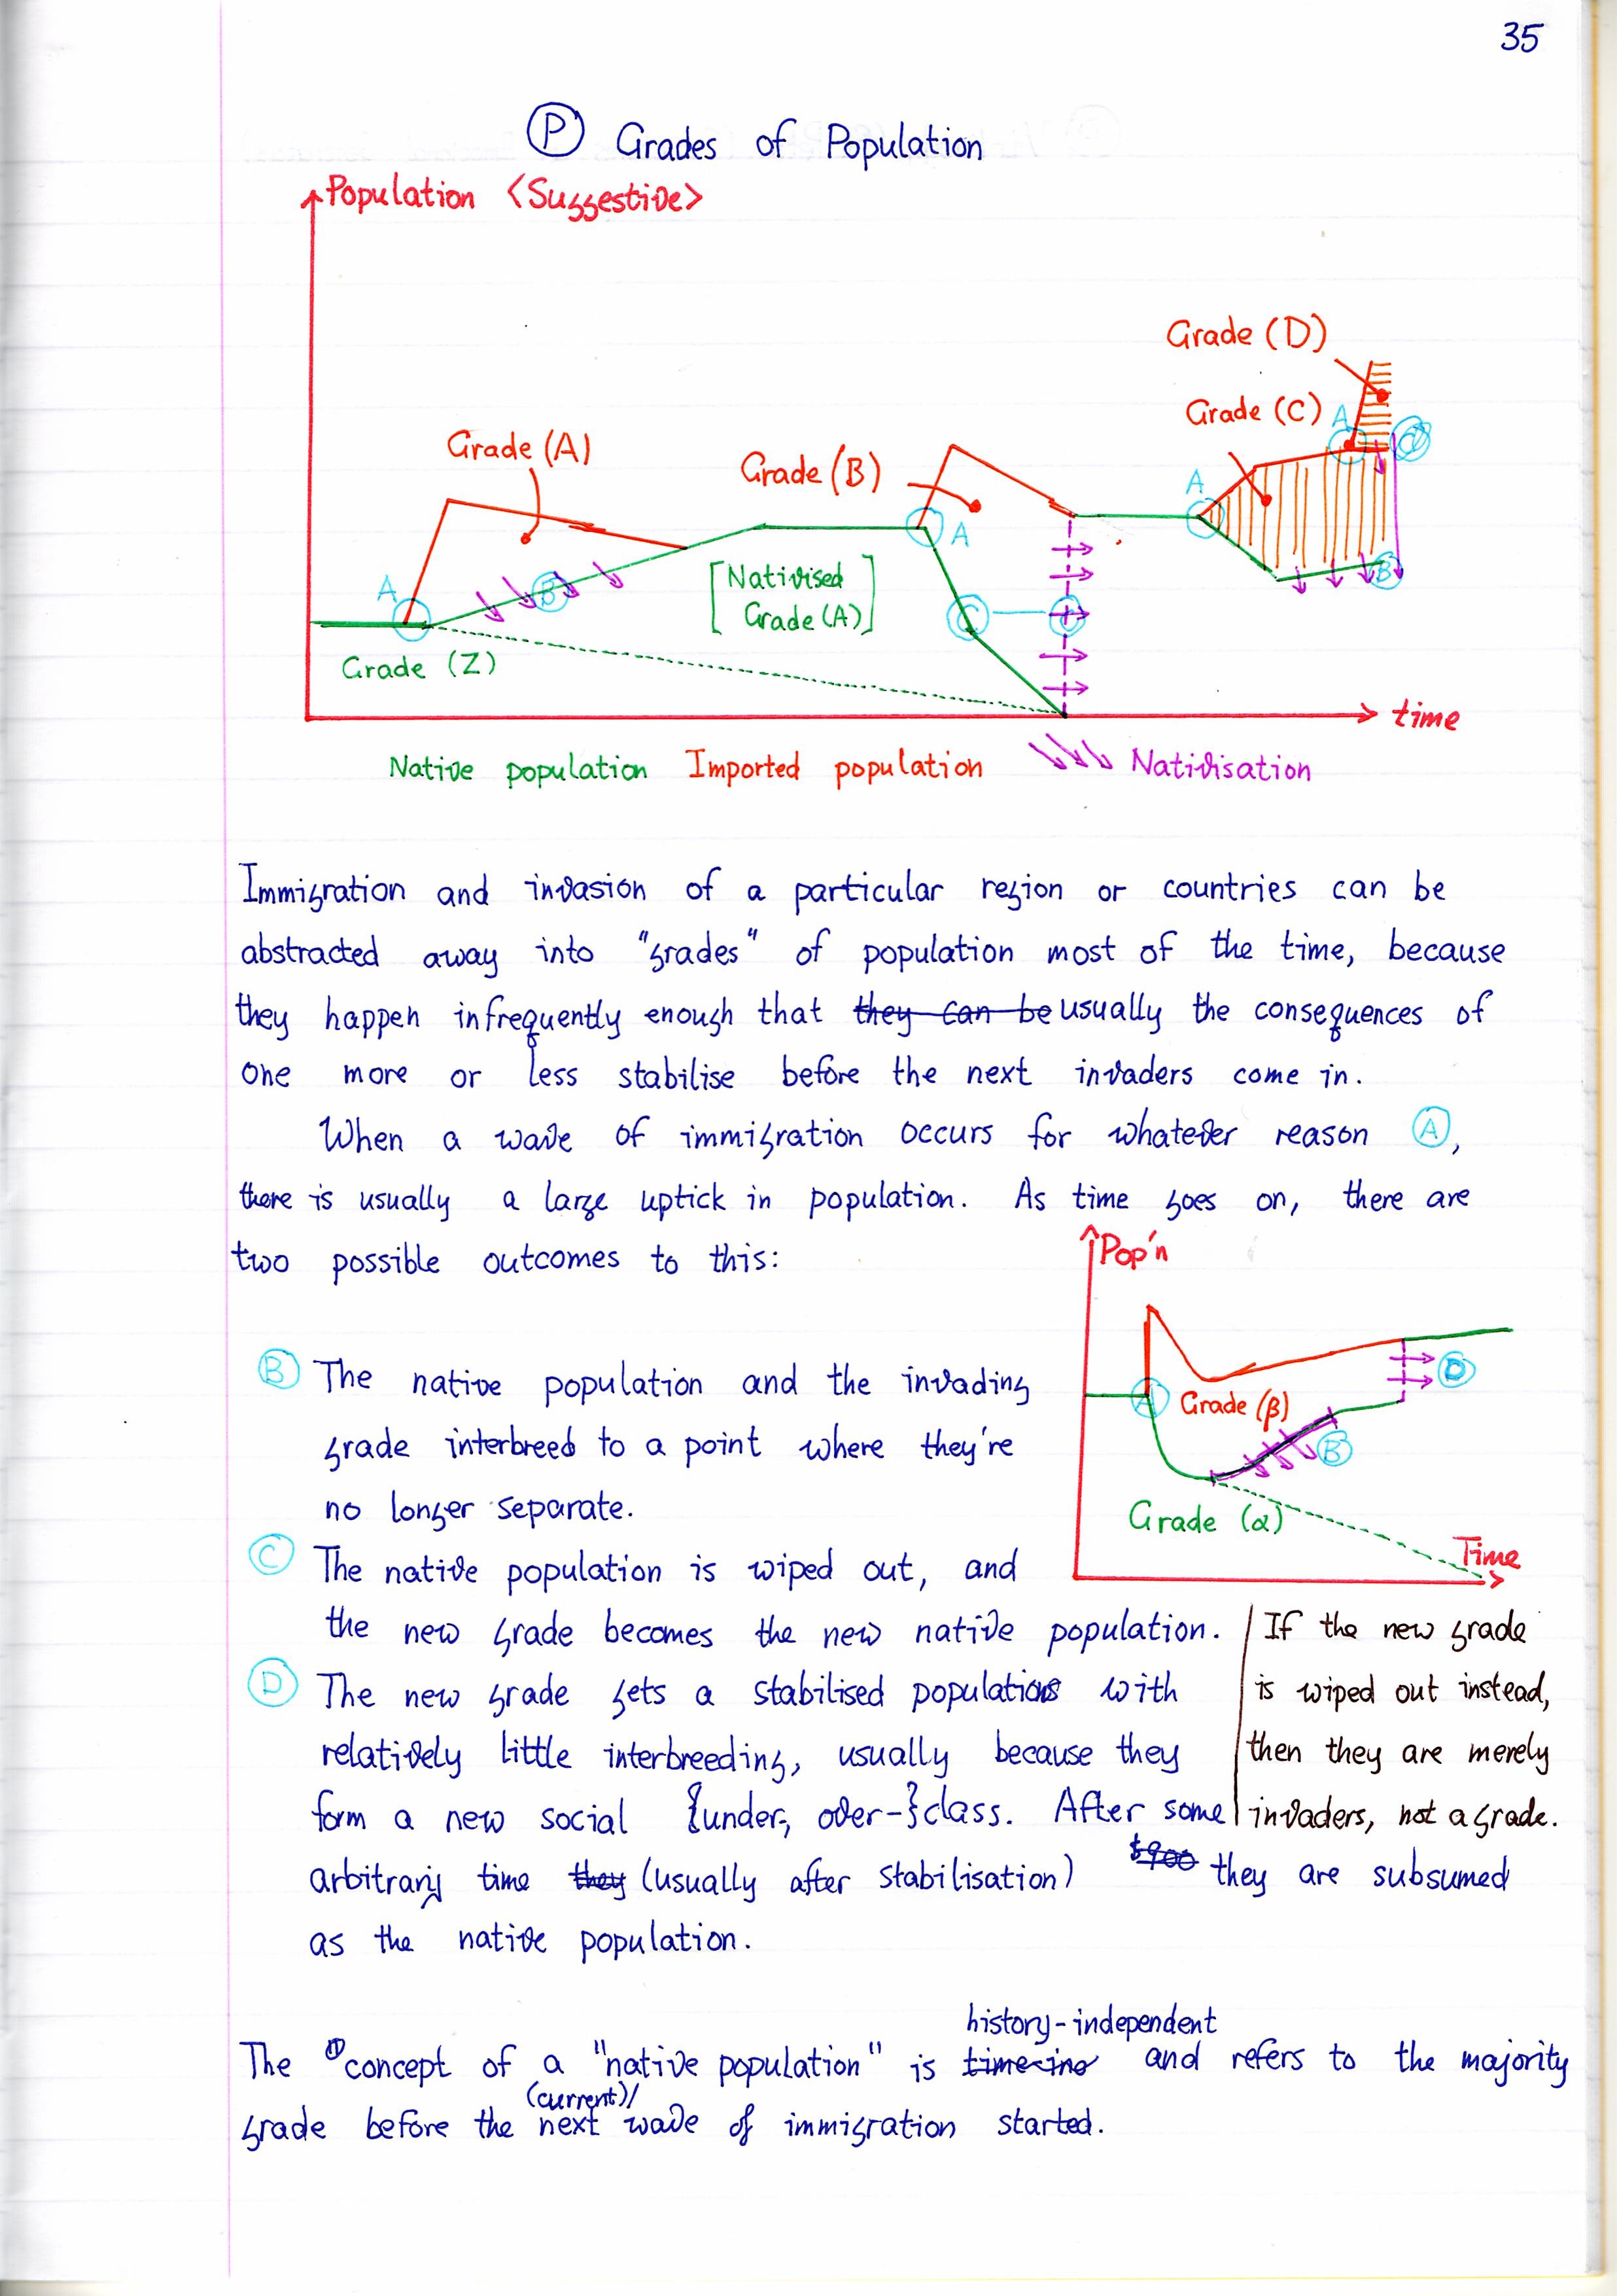 35
Ⓟ Grades of Population
Population <Suggestive>
Grade (D)
Grade (C)
A
Grade (A)
Grade (B)
A
A
A
B
B
[Nativised
Grade (A)]
C
C
D
Grade (Z)
time
Native population Imported population Nativisation
Immigration and invasion of a particular region or countries can be
abstracted away into "grades" of population most of the time, because
they happen infrequently enough that they can be usually the consequences of
one more or less stabilise before the next invaders come in.
When a wave of immigration occurs for whatever reason Ⓐ,
there is usually a large uptick in population. As time goes on, there are
two possible outcomes to this:
Pop'n
A
Grade (β)
D
B
Grade (α)
Time
Ⓑ The native population and the invading
grade interbreed to a point where they're
no longer separate.
Ⓒ The native population is wiped out, and
the new grade becomes the new native population.
Ⓓ The new grade gets a stabilised population with
relatively little interbreeding, usually because they
form a new social {under-, over-}class. After some
arbitrary time they (usually after stabilisation) they are subsumed
as the native population.
If the new grade
is wiped out instead,
then they are merely
invaders, not a grade.
history-independent
The concept of a "native population" is time-ind and refers to the majority
(current)/
grade before the next wave of immigration started.